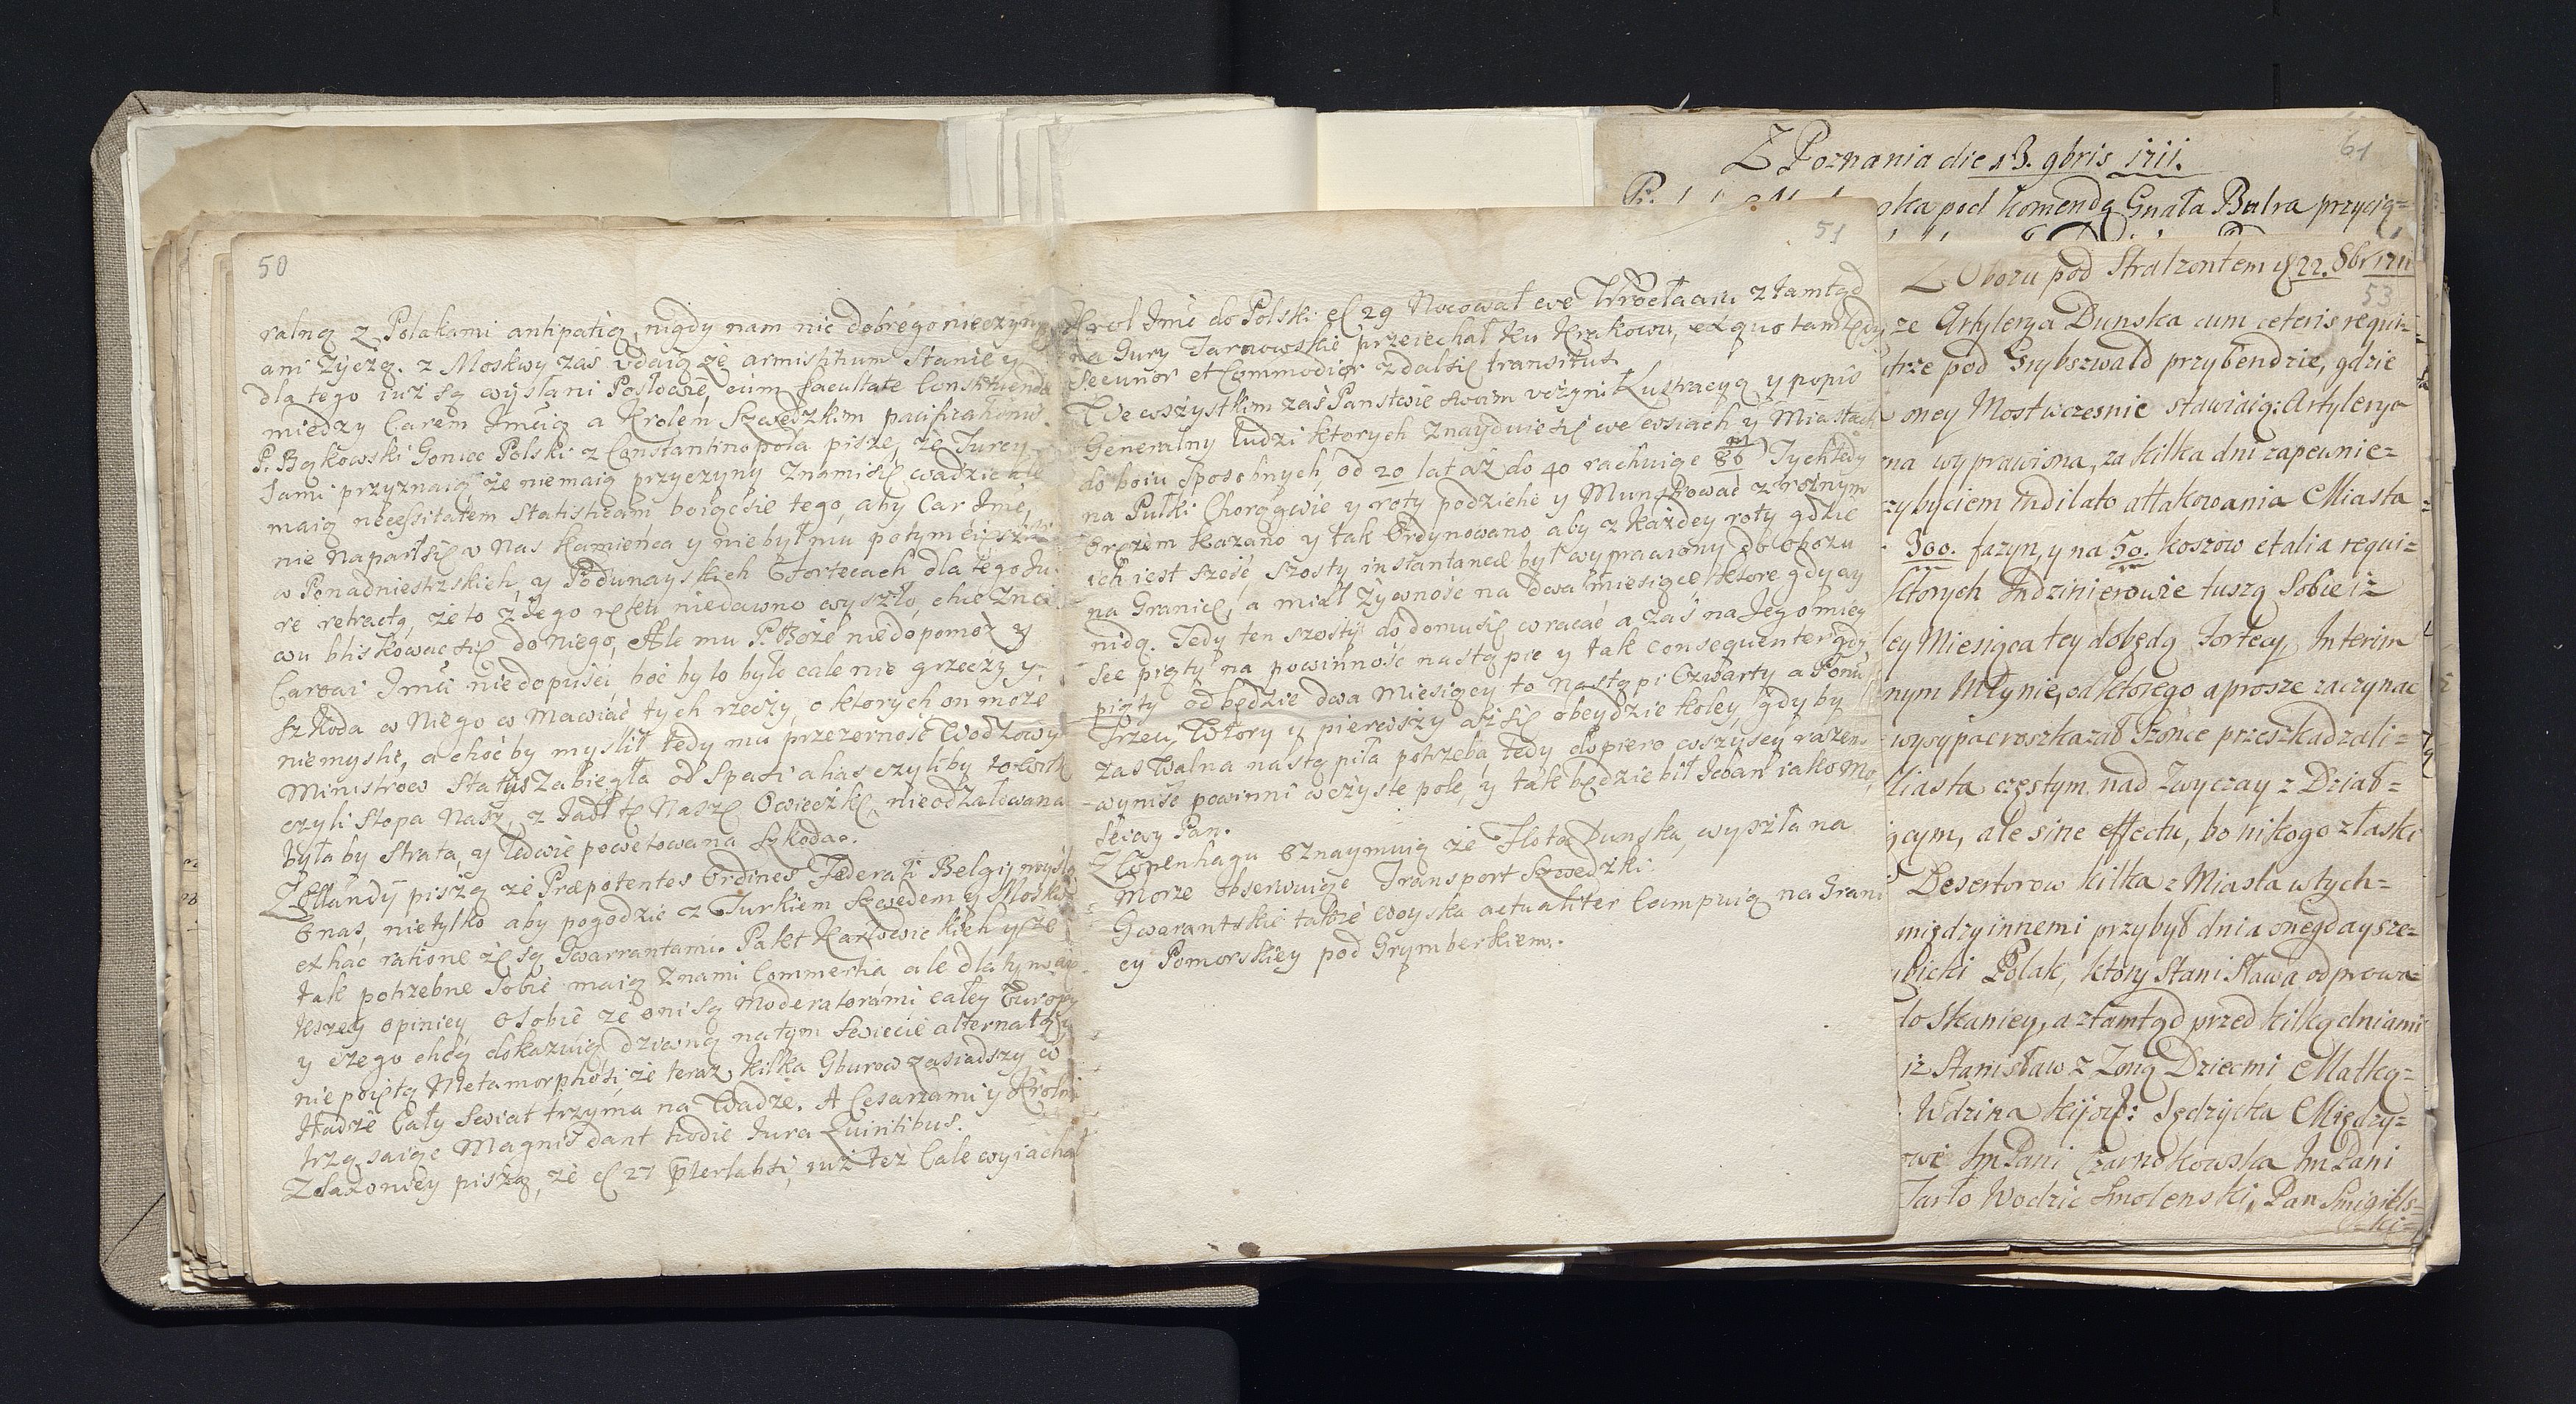 50
ralną z Polakami antipatią, nigdy nam nic dobrego nieczynią
ani życzą. z Moskwy zas udaią że armistitium stanie y
dla tego iuż są wysłani Posłowie, cum facultate
między Carem Jmćią a Krolem Szwedzkim
P. Bąkowski Goniec Polski z Constantinopola pisze, że Turcy
sami przyznaią że niemaią przyczyny znami się wadzić ale
maią necessitatem statisticam boiąc sie tego, aby Car Jmć,
nie naparł się w Nas Kamieńca y niebył mu potym
w Ponadniestrskich, y Podunayskich Fortecach dla tego Ju
re retracto, że to z Jego ręku niedawno wyszło, chce znie
wu bliskować się do niego, Ale mu P. Boże niedopomoż y
Carowi Jmći niedopuści, boć by to było cale nie grzeczy y
szkoda w Niego w mawiać tych rzeczy, o ktorych on może
niemyśli, a choć by myślił tedy mu przezorność Wodzowy
Ministrow Statûs zabiegła od Spasi alias czyliby to Wilk
czyli Słopa Nasz, z Jadł tę Naszę Owieczkę, nieodżałowana
była by strata, y ledwie powetowana szkoda.
Z Ollandÿ piszą że Præpotentes Ordines Fæderati Belgij myslą
Onas, nie tylko aby pogodzić z Turkiem Szwedem y Moskwą
ex hac ratione że są Gwarrantami. Pakt Karlowickich y że
tak potrzebne sobie maią znami Commertia ale dla
kszey opiniey osobie że oni są Moderatorámi całey Europy
y czego chcą dokazuią dziwną natym Swiecie alternatą y
nie poiętą Metamorphosi, że teraz kilka Gburow zasiadszy w
Hadze Cały Swiat trzyma na Wadze. A Cesarzami y Krolmi
trząsaiąc Magnis dant hodie Jura Quiritibus.
Z Saxoniey piszą, że d 27 præterlapsi, iuż też Cale wyiachał
51
Krol Jmć do Polski d 29 Nocował we Wrocławiu ztamtąd
na Gury Tarnowskie przeiechał ku Krakowu, ex quo tamtędy
Securior et Commodior zdał się transitus.
We wszystkim zaś Panstwie swoim uczyni Lustracyą y popis
Generalny ludzi ktorych znayduie się we wsiach y Miastach
do boiu sposobnych, od 20 lat aż do 40 rachuiąc Tych tedy
na Pułki Chorągwie y roty podzielić y z rożnym
Orężem kazano y tak Ordynowano, aby z każdey roty gdzie
ich iest sześć, szosty instantanee był wyprawiony do obozu
na Granicę, a miał żywność na dwa miesiące, ktore gdy wy
nidą. Tedy ten szosty do domu się wracać a zaś na Jego miey
sce piąty na powinność nastąpie y tak consequenter gdy
piąty odbędzie dwa miesiący to nastąpi Czwarty a Ponim
Trzeci, Wtory y pierwszy aż się obeydzie koley gdy by
zas Walna nastąpiła potrzeba, tedy dopiero wszyscy razem
wyniść powinni w czyste pole, y tak będzie bił Jeban iako Mo
ściwy Pan.
Z Copenhagu Oznaymuią że Flota Dunska, wyszła na
morze obserwuiąc Transport Szwedzki.
Gwarantskie także woyska actualiter Campuią na Grani
cy Pomorskiey pod Grymberkiem.
61
Z Poznania die 13. 9bris 1711.
ska pod komendą Gnała Bulra przycią=
Z Obozu pod Stralzontem d 22. 8br 1711
53
że Artylerya Dunska cum ceteris requi=
utrze pod Grybszwald przybendzie, gdzie
oney Most wczesnie stawiaią: Artylerya
na wyprawiona, za kilka dni zapewnie=
zybyciem indilato attakowania Miasta
300. fazyn, y na 50. koszow et alia requi=
ktorych Indzinierowie tuszą sobie iż
ley Miesiąca tey dobędą Fortecy, Interim
nym Młynie, od ktorego aprosze zaczynac
wysypać roszkazał Szońce przeszkadzali=
Miasta częstym nad Zwyczay z Dział=
iącym, ale sine effectu, bo nikogo z łaski
Desertorow kilka z Miasta w tych=
międzyinnemi przybył dnia onegdaysze=
bicki Polak, ktory Stanisława odprowa=
do Skaniey, a ztamtąd przed kilką dniami
iż Stanisław z Zoną Dziecmi, Matką=
Wdzina kijow: Sędzicka Między=
owi ImPani Czarnokowska ImPani
Tarło Wodzic Smolenski, Pan Smigiels=
=ki=